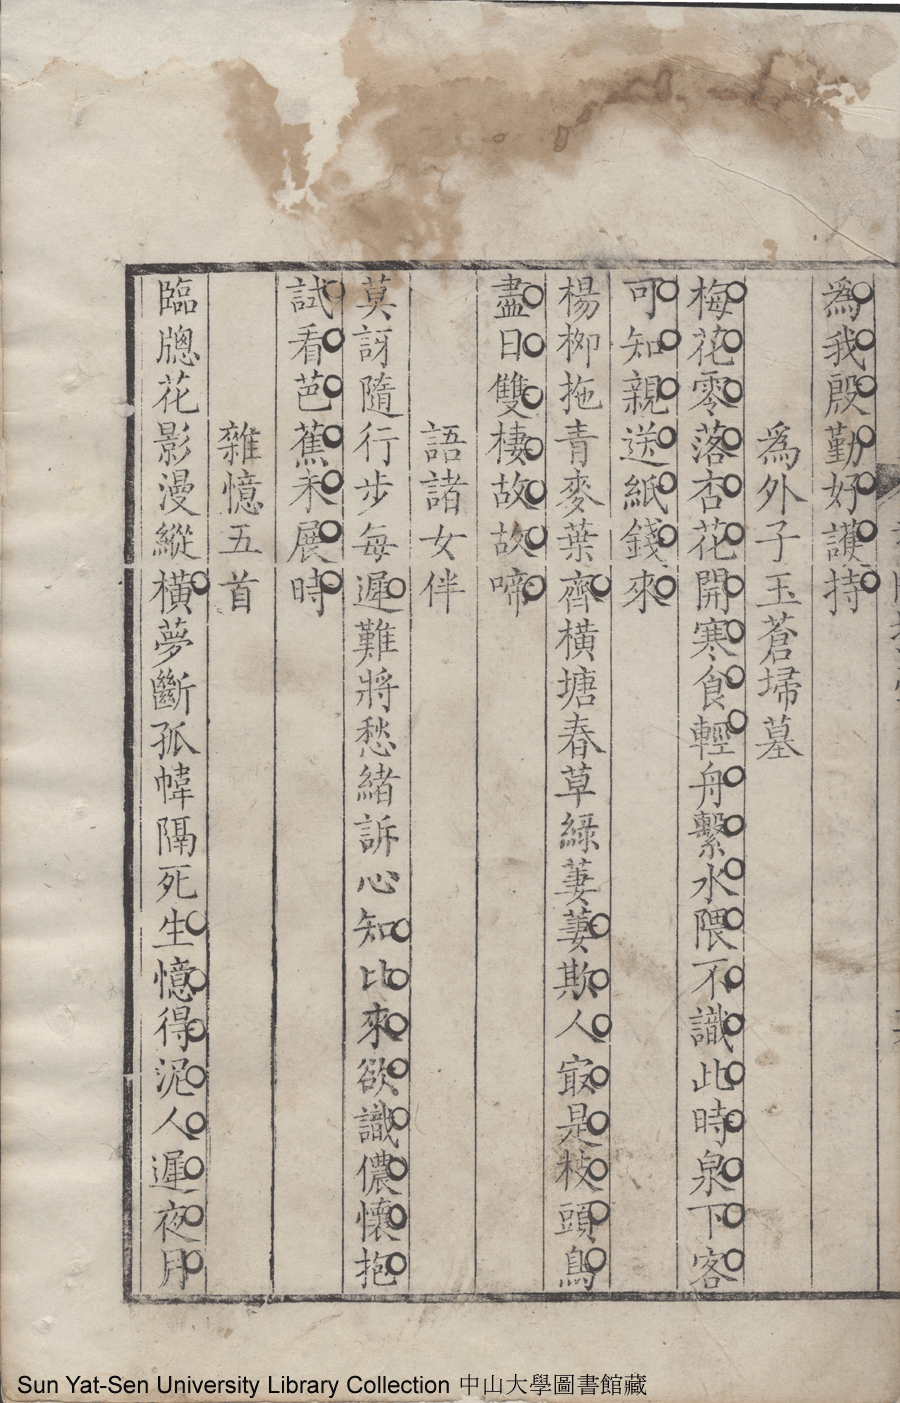 為我殷勤好護持
為外子玉蒼埽墓
梅花零落杏花開寒食輕舟繫水隈不識此時泉下客
可知親送紙錢來
楊栁拖青麥葉齊橫塘春草綠萋萋欺人㝡是枝頭鳥
盡日雙棲故故啼
語諸女伴
莫訝隨行步每遲難將愁緒訴心知比來欲識儂懷抱
試看芭蕉未展時
雜憶五首
臨牎花影漫縱橫夢斷孤幃隔死生憶得泥人遲夜月
Sun Yat-Sen University Library Collection 中山大學圖書館藏